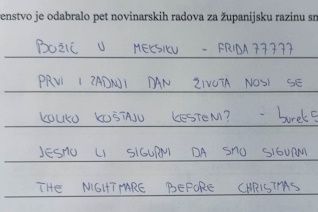 enstvo je odabralo pet novinarskih radova za županijsku razinu sm
BOŽIĆ U MEKSIKU - FRIDA77777
PRVI I ZADNJI DAN ŽIVOTA NOSI SE
KOLIKO KOŠTAJU KESTENI? - burek5
JESMO LI SIGURNI DA SMO SIGURNI
THE NIGHTMARE BEFORE CHRISTMAS